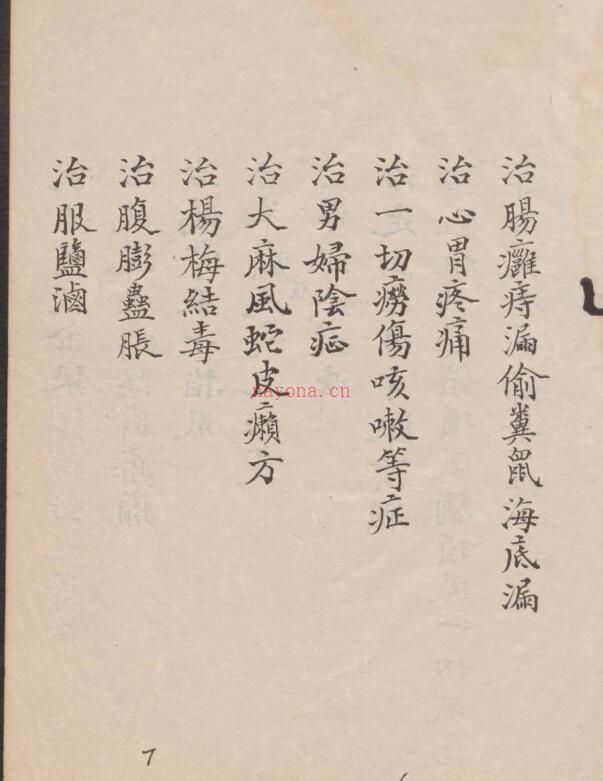 治腸癰痔漏偷糞鼠海底漏
治心胃疼痛
治一切癆傷咳嗽等症
治男婦陰症
治大麻風蛇皮癩方
治楊梅結毒
治腹膨蠱脹
治服鹽滷
nayona.cn
7